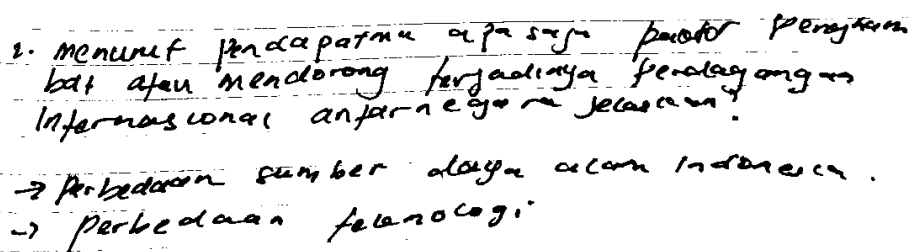 2. menurut pendapatmu apa saja paktor penegham
bat atau mendorong terjadinya perdagangan
Internasional antarnegara jelaskan?
→ perbedaan sumber daya alam Indonesia.
→ perbedaan teknologi.